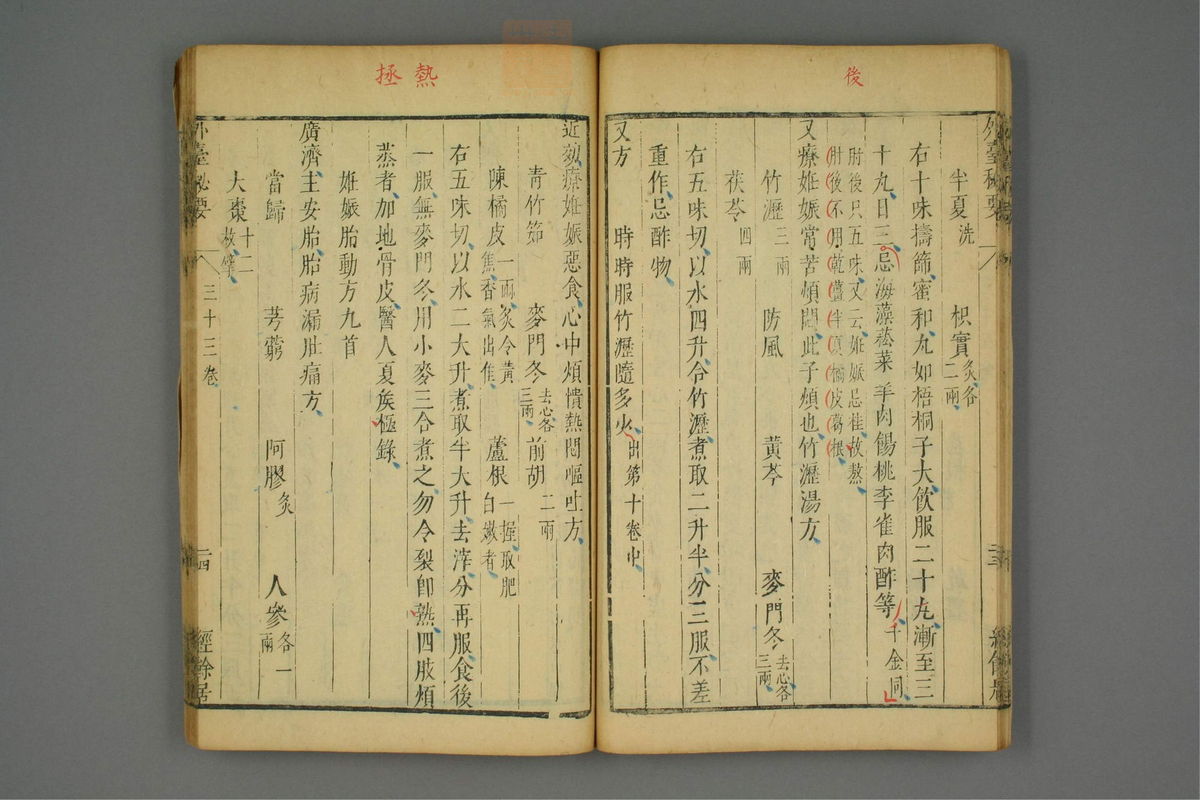 後
外臺秘要
半夏洗 枳實炙各二兩
右十味擣篩蜜和丸如梧桐子大飲服二十丸漸至三
十丸日三忌海藻菘菜羊肉餳桃李雀肉酢等千金同
肘後只五味又云姙娠忌桂故熬
肘後不用乾薑半夏橘皮葛根
又療姙娠常苦煩悶此子煩也竹瀝湯方
竹瀝三兩 防風 黃芩 麥門冬去心各三兩
茯苓四兩
右五味切以水四升合竹瀝煮取二升半分三服不差
重作忌酢物
又方 時時服竹瀝隨多少出第十卷中
熱
拯
近効療姙娠惡食心中煩憒熱悶嘔吐方
青竹筎 麥門冬去心各三兩 前胡二兩
陳橘皮一兩炙令黃焦香氣出佳 蘆根一握取肥白嫩者
右五味切以水二大升煮取半大升去滓分再服食後
一服無麥門冬用小麥三合煮之勿令裂即熟四肢煩
蒸者加地骨皮醫人夏侯極錄
姙娠胎動方九首
廣濟主安胎胎病漏肚痛方
當歸 芎藭 阿膠炙 人參各一兩
大棗十二枚擘
外臺秘要 三十三卷 二四 經餘居